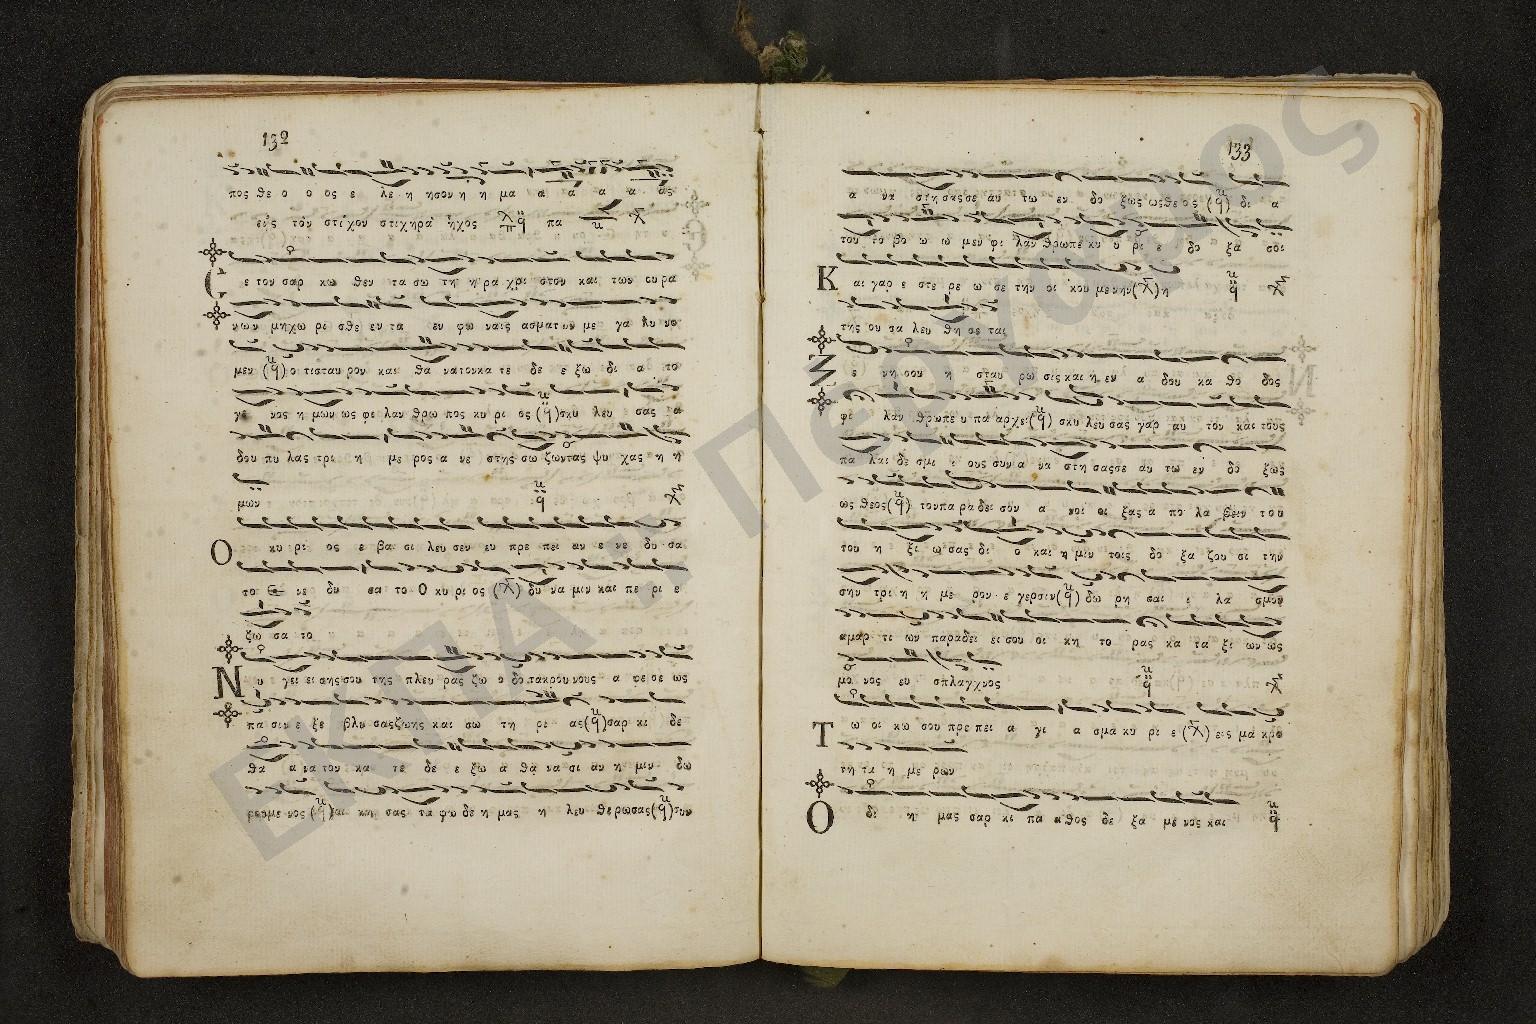 132
πος θε ο ο ος ε λε η ησον η η μα α α α α ας
εἰς τὸν στίχον στιχηρὰ ἦχος πα
ε τον σαρ κω θεν τα σω τη η ρα χρι στον και των ου ρα
νων μη χω ρι σθε εν τα εν φω ναις ασματων με γα λυ νω
μεν ο τι σταυ ρον και θα να τον κα τε δε ε ξω δι α το
γε νος η μων ως φι λαν θρω πος κυ ρι ος σκυ λευ σας α
δου πυ λας τρι η με ρος α νε στης σω ζων τας ψυ χας η η
μων
Ο κυ ρι ος ε βα σι λευ σεν ευ πρε πει αν ε νε δυ σα
το Ε νε δυ σα το Ο κυ ρι ος δυ να μιν και πε ρι ε
ζω σα το
Ν υ γει ει σης σου της πλευ ρας ζω ο δο τα κρου νους α φε σε ως
πα σιν ε ξε βλυ σας ζωης και σω τη ρι ας σαρ κι δε
θα α να τον κα τε δε ε ξω α θα να σι αν η μιν δω
ρουμε νος και κη σας τα φω δε η μας η λευ θε ρωσας συν
133
α να στη σας σε αυ τω εν δο ξως ως θε ος δι α
του το βο ω ω μεν φι λαν θρωπε κυ υ ρι ε δο ξα σοι
Κ αι γαρ ε στε ρε ω σε την οι κου με νην η
της ου σα λευ θη σε ται
Ξ ε νη σου η σταυ ρω σις και η εν α δου κα θο δος
φι λαν θρωπε υ πα αρχει σκυ λευ σας γαρ αυ τον και τους
πα λαι δε σμι ι ους συν α να στη σας σε αυ τω εν δο ξως
ως θεος τον πα ρα δει σον α νοι οι ξας α πο λα βειν του
του η ξι ω σας δι ο και η μιν τοις δο ξα ζου σι την
σην τρι η η με ρον ε γερσιν δω ρη σαι ι λα σμον
αμαρ τι ων παραδει ει σου οι κη το ρας κα τα ξι ων ως
μο νος ευ σπλαγχνος
Τ ω οι κω σου πρε πει α γι α σμα κυ ρι ε εις μα κρο
τη τα η με ρων
Ο δι η μας σαρ κι πα α θος δε ξα με νος και